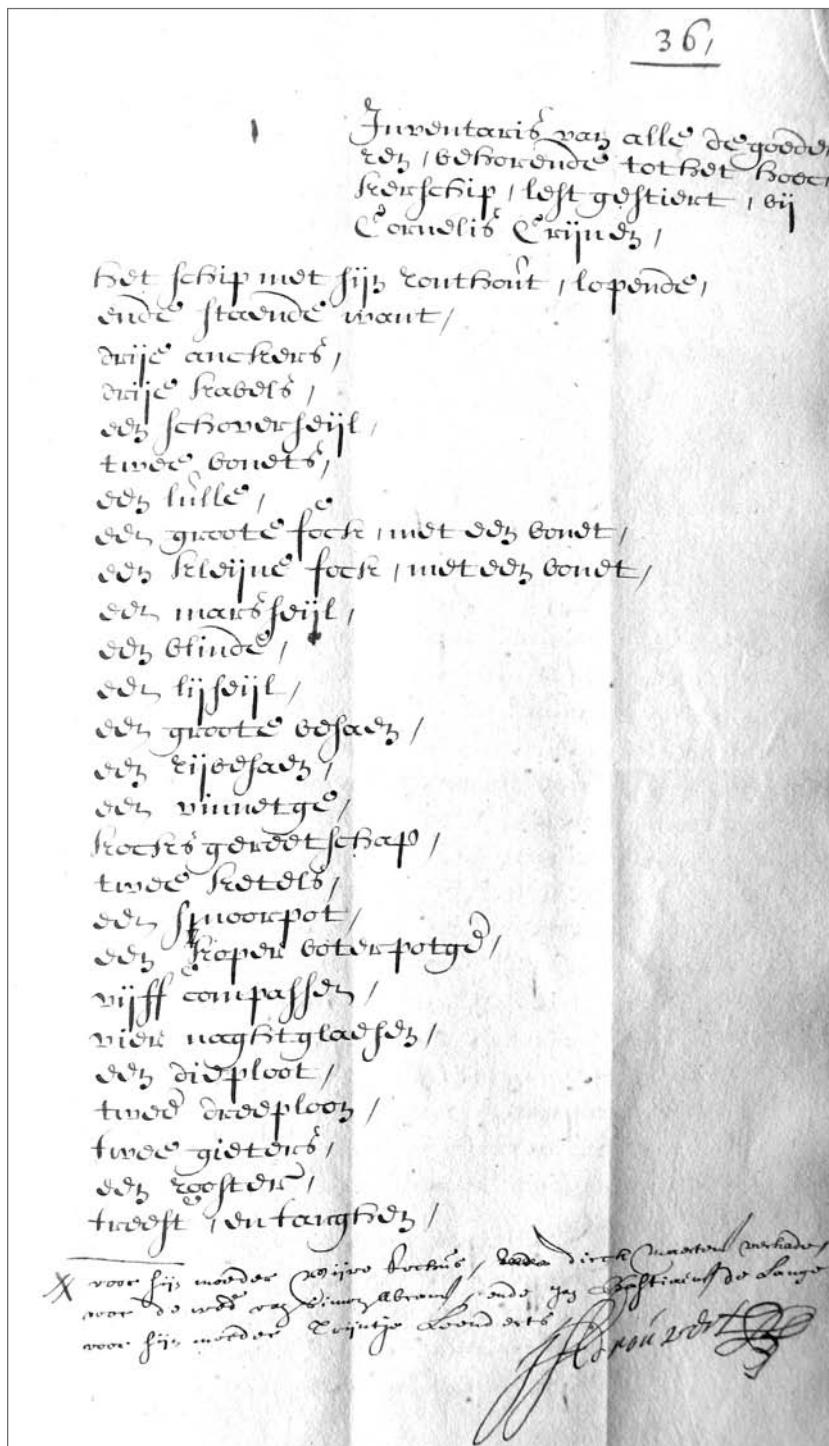 36,
Inventaris van alle de goede
ren, behorende tot het hoec
kerschip, lest gestiert, bij
Cornelis Crijnen,
het schip met sijn ronthout, lopende,
ende staende want,
drije anckers,
drije kabels,
een schoverseijl,
twee bonets,
een lulle,
een groote fock, met een bonet,
een kleijne fock, met een bonet,
een marsseijl,
een blinde,
een lijseijl,
een groote besaen,
een rijbesaen,
een vinnetge,
kocks gereetschap,
twee ketels,
een smoorpot,
een koper boterpotge,
vijff compassen,
vier naghtglaesen,
een dieploot,
twee dreeploon,
twee gieters,
een rooster,
treeft, en tanghen,
voor sijn moeder Rochus, dirck Maerten verkade,
voor de wed van Simon Abrams, ende Jan Bastiaens de Lange
voor sijn moeder Trijntje Leenderts